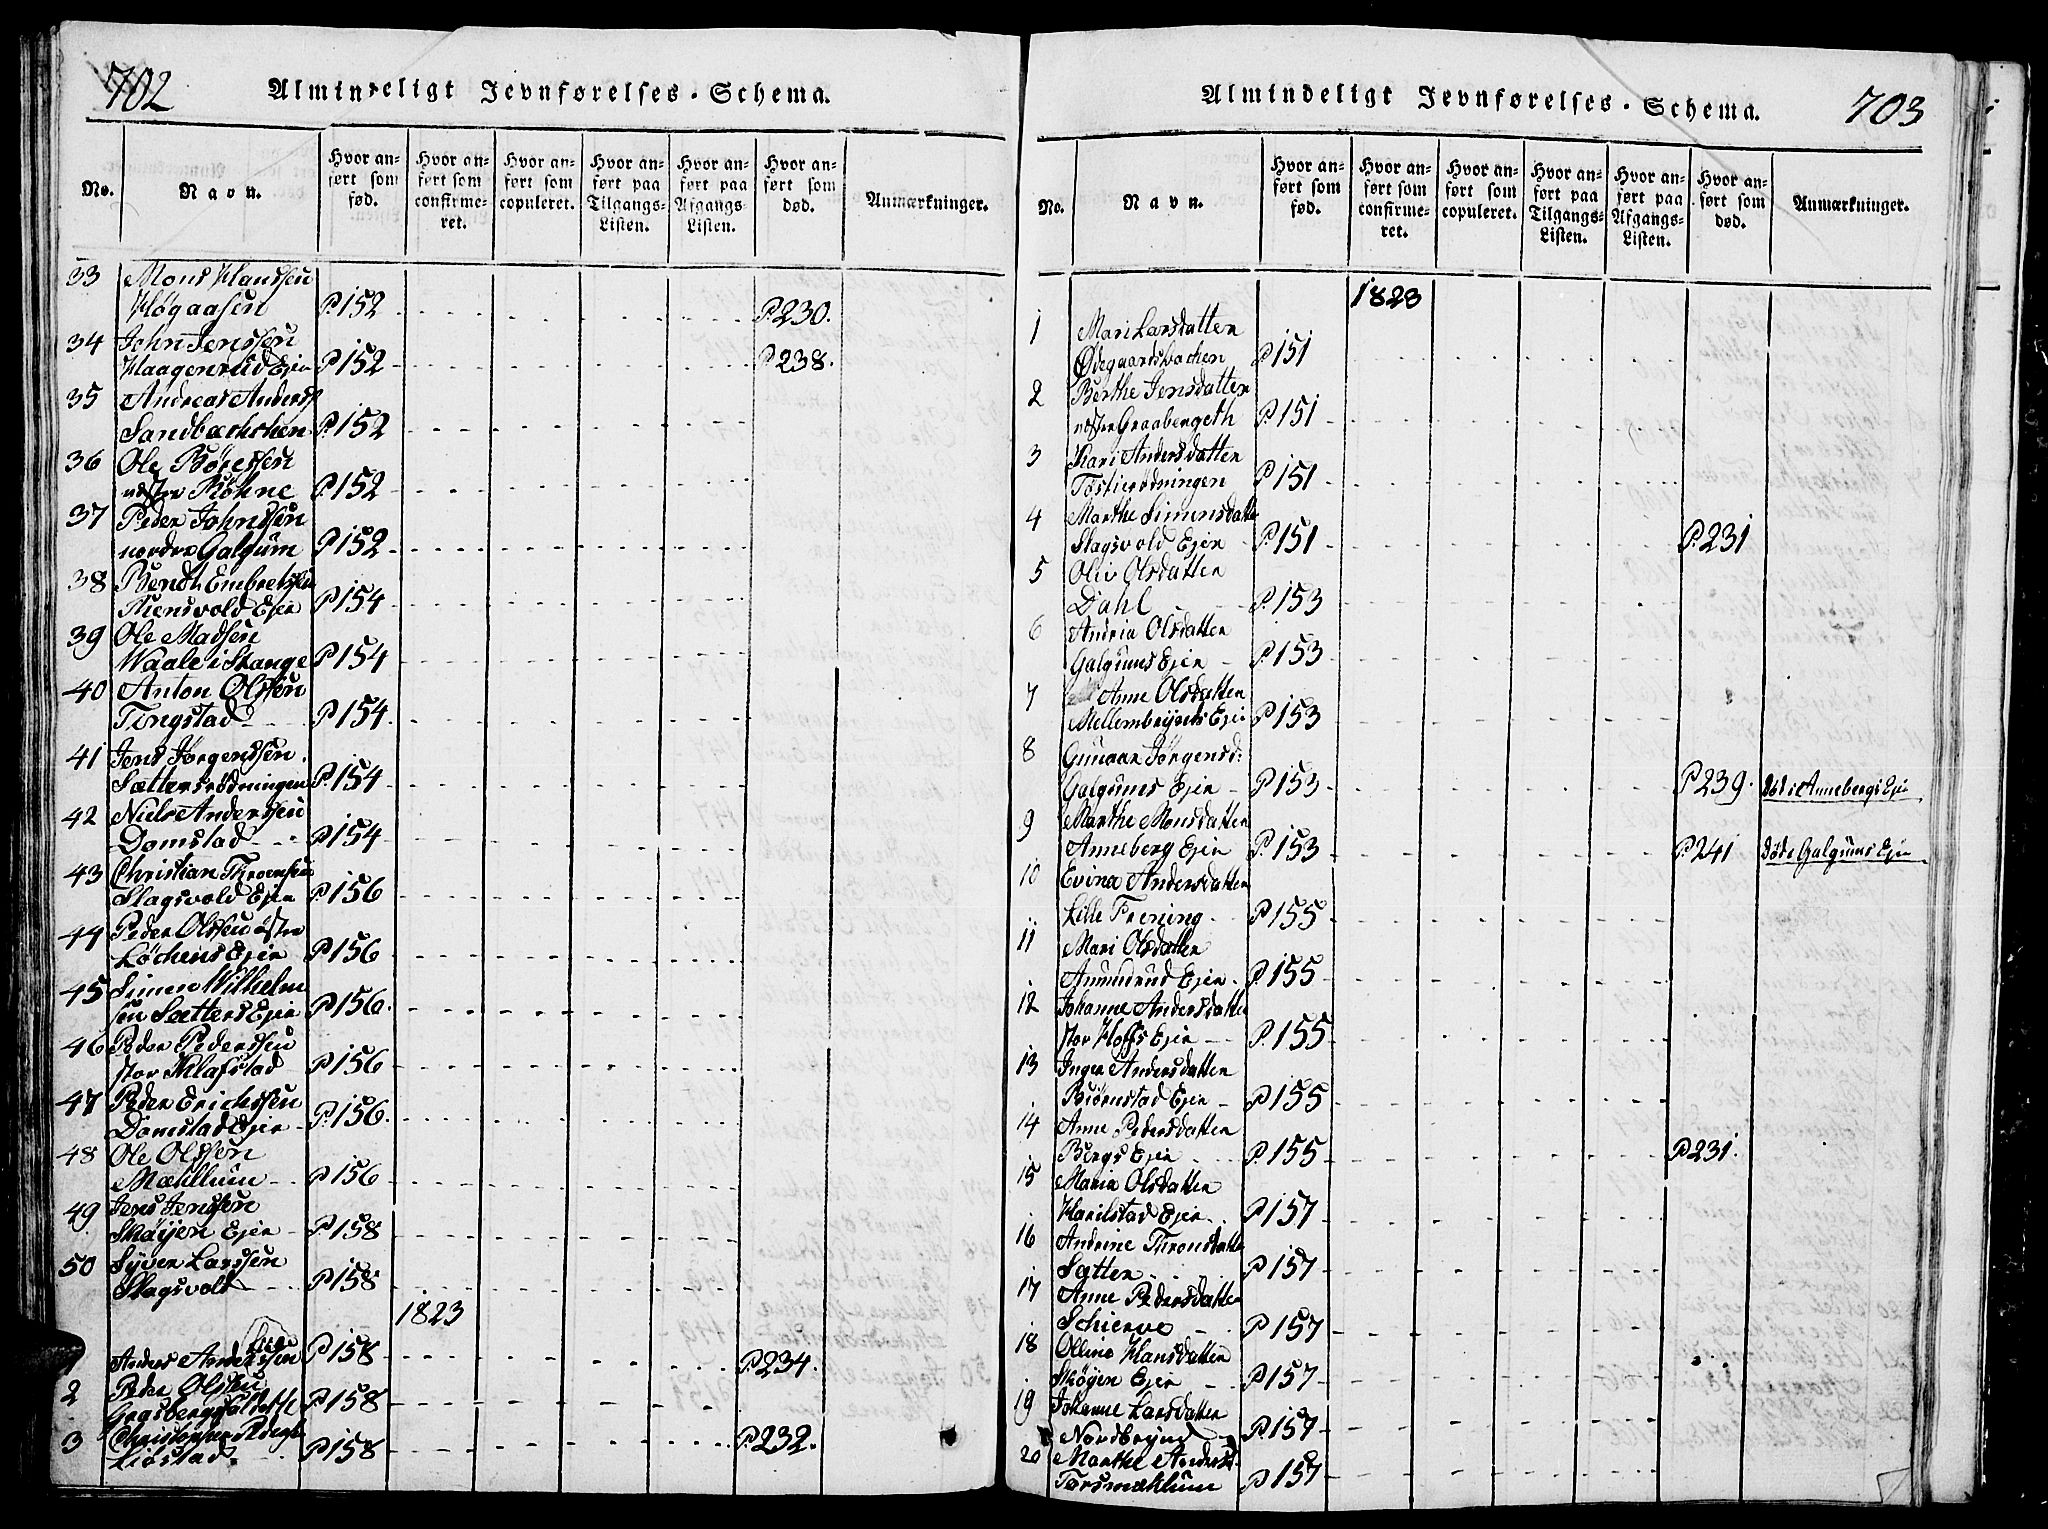 702
Almindeligt Jevnførelses-Schema.
No.
Navn.
Hvor anført som fød.
Hvor anført som confirmeret.
Hvor anført som copuleret.
Hvor anført paa Tilgangs-Listen.
Hvor anført paa Afgangs-Listen.
Hvor anført som død.
Anmærkninger.
33 Mons Hanssen
Høgaasen P.152 P.230.
34 John Jenssen
Haagenrud Ejer P.152 P.238.
35 Andreas Anders
Sandbachchen P.152
36 Ole Børessen
vestre Røhne P.152
37 Peder Johnssen
nordre Galgum P.152
38 Bendt Embretssen
Riensvold Ejer P.154
39 Ole Madsen
Waale i Stange P.154
40 Anton Olssen
Tingstad P.154
41 Jens Jørgenssen
Sættersrødningen P.154
42 Niels Anderssen
Domstad P.154
43 Christian Thronsen
Slagsvold Ejer P.156
44 Peder Olssen østre
Løchens Ejer P.156
45 Simen Wilhelm
sen Sætters Ejer P.156.
46 Peder Pederssen
stor Klafstad P.156
47 Peder Erichssen
Domstad Ejer P.156.
48 Ole Olssen
Mæhllum P.156
49 Jens Jenssen
Skøyen Ejer P.158
50 Syver Larssen
Slagsvold P.158
1823
1 Anders Anderssen P.158 P.234.
2 Peder Olssen
P.158
3 Christopher
Liøstad. P.158 P.232.
Almindeligt Jevnførelses-Schema.
703
No.
Navn.
Hvor anført som fød.
Hvor anført som confirmeret.
Hvor anført som copuleret.
Hvor anført paa Tilgangs-Listen.
Hvor anført paa Afgangs-Listen.
Hvor anført som død.
Anmærkninger.
1823
1 Mari Larsdatter
Ødegaardsbachen P.151
2 Berthe Jensdatter
vestre Graabergeth P.151
3 Kari Andersdatter
Tostierødningen P.151
4 Marthe Simensdatter
Slagsvold Ejer P.151 P.231
5 Oliv Olsdatter
Dahl P.153
6 Andria Olsdatter
Galgums Ejer P.153
7 Anne Olsdatter
Mellembyes Ejer P.153
8 Gunaar Jørgensd:
Galgums Ejer P.153 P.239. Død i Annebergs Ejer
9 Marthe Monsdatter
Anneberg Ejer P.153 P.241 død i Galgums Ejer
10 Evina Andersdatter
Lille Frening P.155
11 Mari Olsdatter
Amundrud Ejer. P.155
12 Johanne Andersdatter
stor Hofs Ejer P.155
13 Inger Andersdatter
Biørnstad Ejer P.155
14 Anne Pedersdatter
Bergs Ejer P.155 P.231.
15 Maria Olsdatter
Harilstad Ejer P.157
16 Andrine Thronsdatter
Sætter P.157
17 Anne Pedersdatter
Schierve P.157
18 Olline Hansdatter
Skøyen Ejer P.157
19 Johanne Larsdatter
Nordbyud P.157
20 Marthe Andersd.
Torsmæhlum P.157